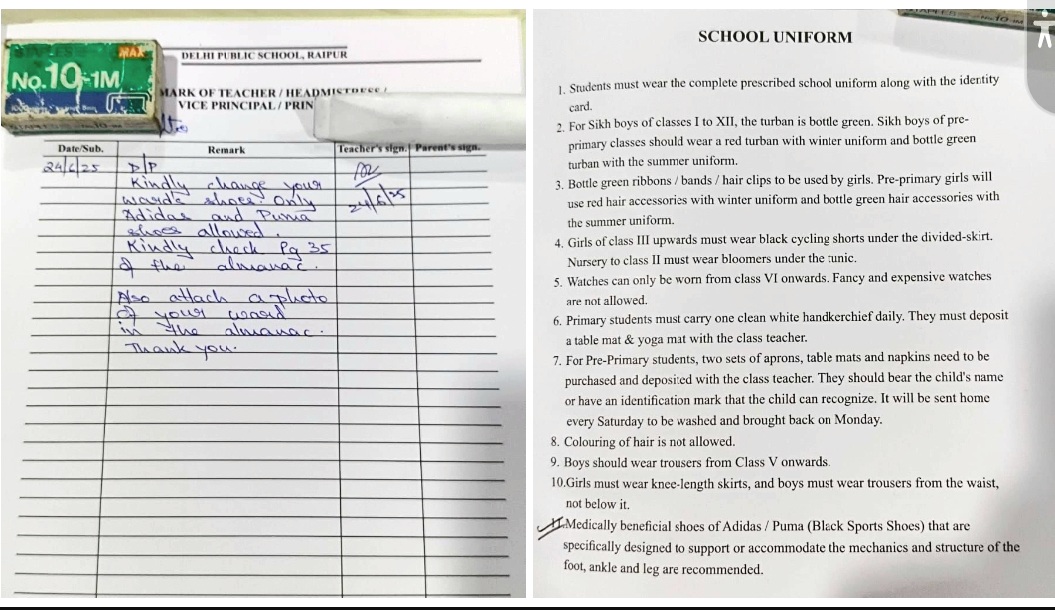 MAX
No.10-1M
DELHI PUBLIC SCHOOL, RAIPUR
MARK OF TEACHER / HEADMISTRESS /
VICE PRINCIPAL / PRIN
Date/Sub.
Remark
Teacher's sign.
Parent's sign.
24/6/25
D/P
Kindly change your
ward's shoes. Only
Adidas and Puma
shoes allowed.
Kindly check Pg 35
of the almanac.
Also attach a photo
of your ward
in the almanac.
Thank you.
24/6/25
SCHOOL UNIFORM
1. Students must wear the complete prescribed school uniform along with the identity
card.
2. For Sikh boys of classes I to XII, the turban is bottle green. Sikh boys of pre-
primary classes should wear a red turban with winter uniform and bottle green
turban with the summer uniform.
3. Bottle green ribbons / bands / hair clips to be used by girls. Pre-primary girls will
use red hair accessories with winter uniform and bottle green hair accessories with
the summer uniform.
4. Girls of class III upwards must wear black cycling shorts under the divided-skirt.
Nursery to class II must wear bloomers under the tunic.
5. Watches can only be worn from class VI onwards. Fancy and expensive watches
are not allowed.
6. Primary students must carry one clean white handkerchief daily. They must deposit
a table mat & yoga mat with the class teacher.
7. For Pre-Primary students, two sets of aprons, table mats and napkins need to be
purchased and deposited with the class teacher. They should bear the child's name
or have an identification mark that the child can recognize. It will be sent home
every Saturday to be washed and brought back on Monday.
8. Colouring of hair is not allowed.
9. Boys should wear trousers from Class V onwards.
10.Girls must wear knee-length skirts, and boys must wear trousers from the waist,
not below it.
11.Medically beneficial shoes of Adidas / Puma (Black Sports Shoes) that are
specifically designed to support or accommodate the mechanics and structure of the
foot, ankle and leg are recommended.